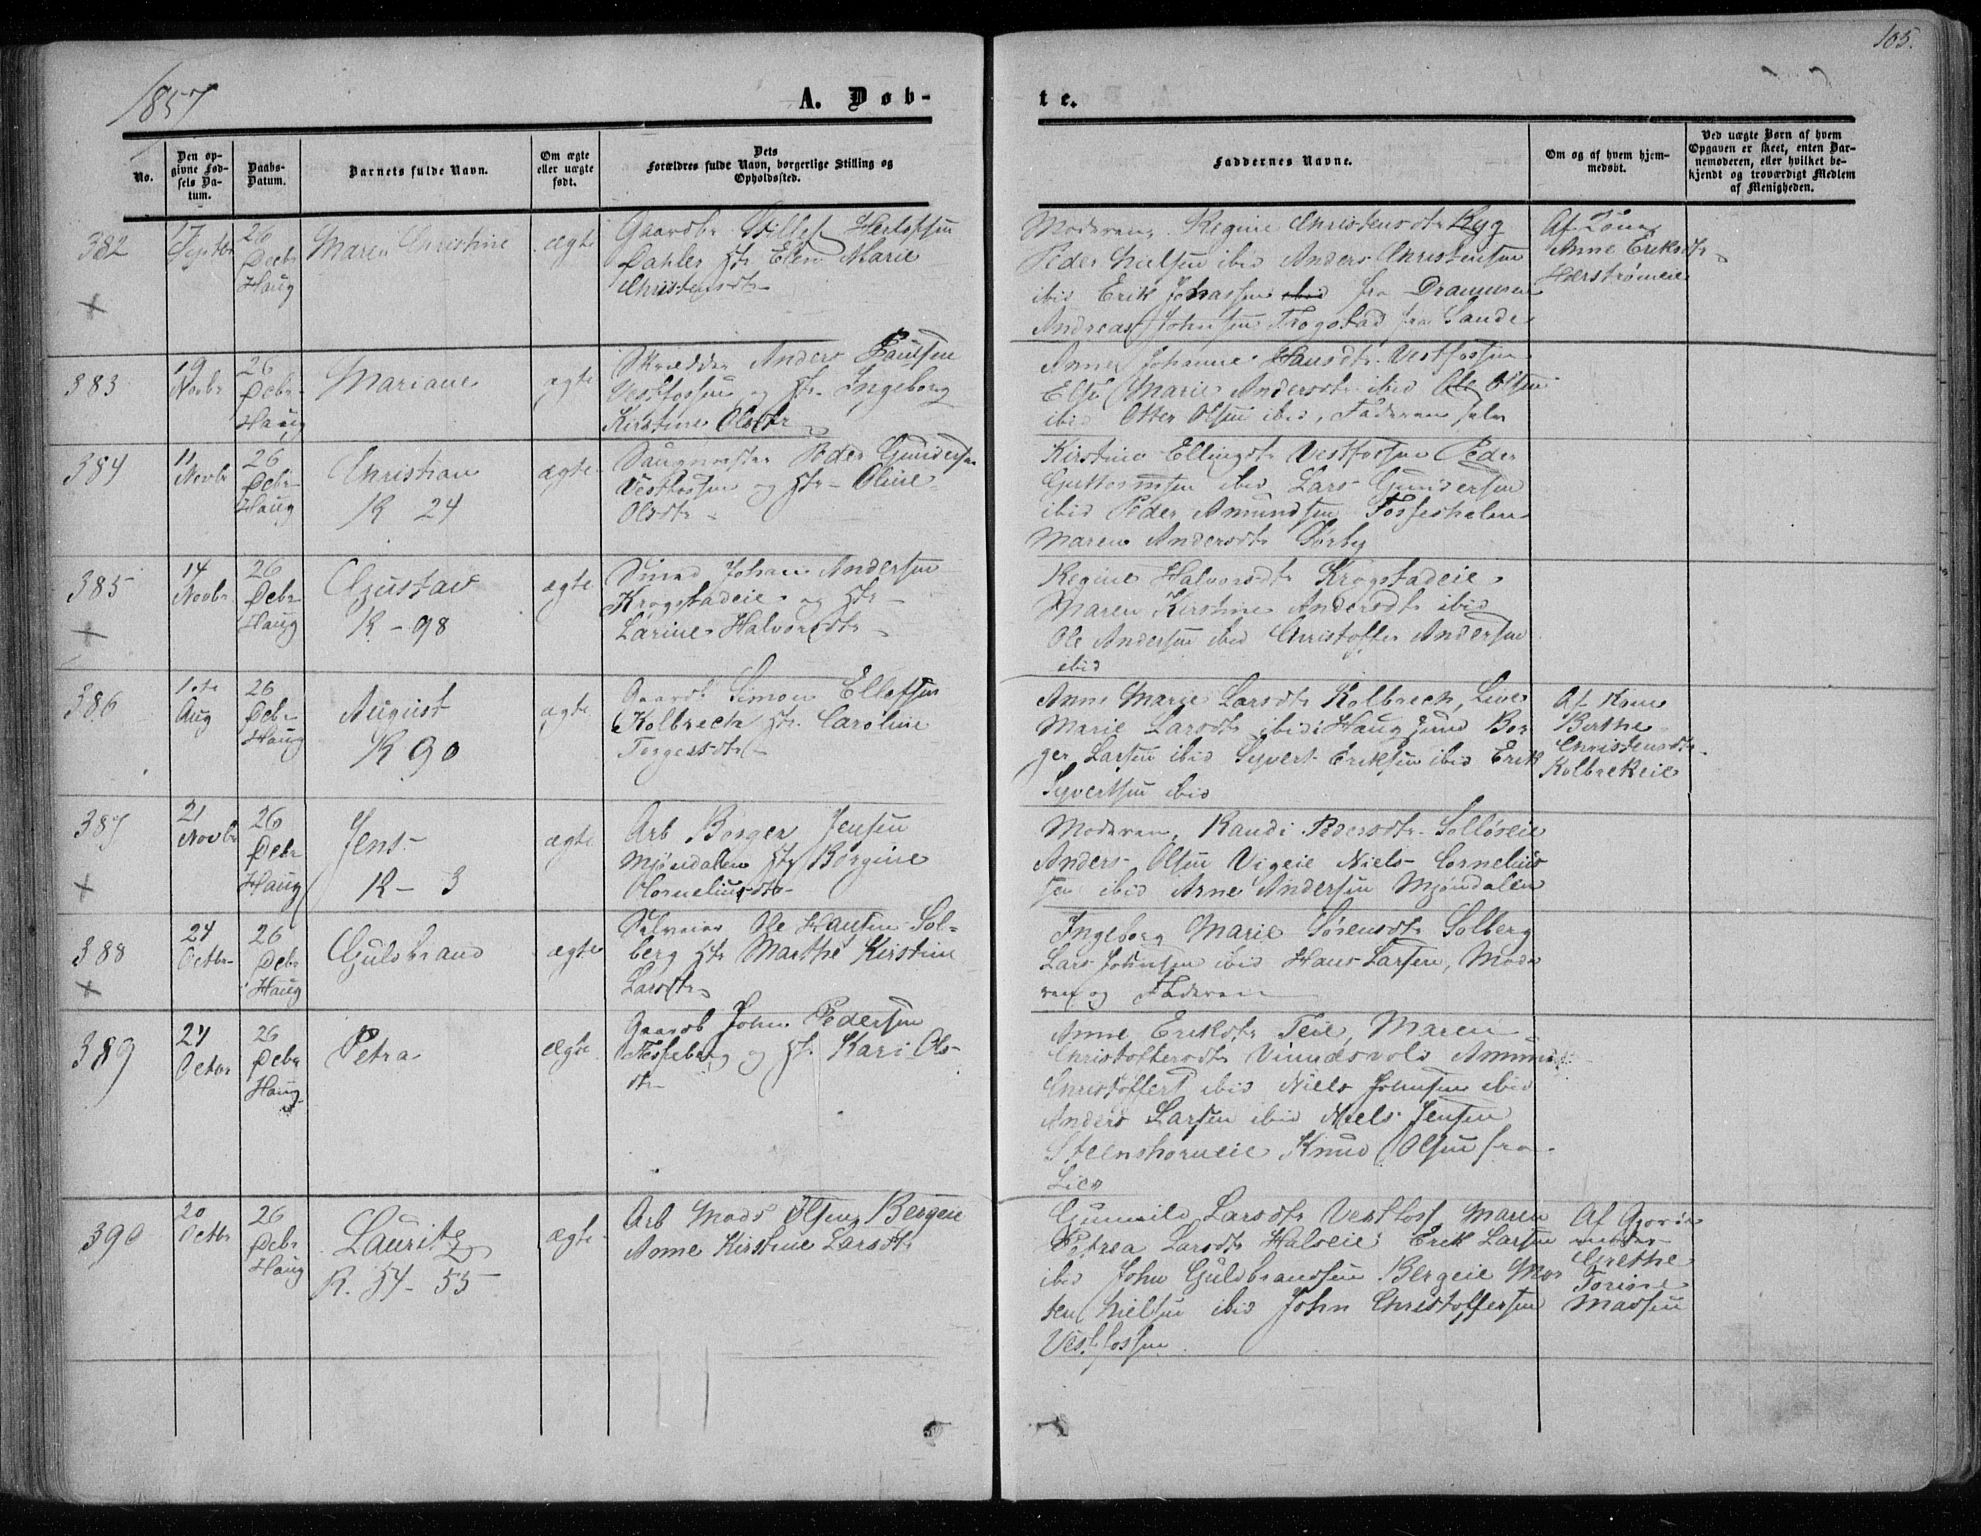 105.
1857
A. Døb-
te.
No.
Den op-
givne Fød-
sels Da-
tum.
Daabs-
Datum.
Barnets fulde Navn.
Om ægte
eller uægte
født.
Dets
Forældres fulde Navn, borgerlige Stilling og
Opholdssted.
Faddernes Navne.
Om og af hvem hjem-
medøbt.
Ved uægte Børn af hvem
Opgaven er skeet, enten Bar-
nemoderen, eller hvilket be-
kjendt og troværdigt Medlem
af Menigheden.
382
17
Septbr
26
Debr
Haug
Maren Christine
ægte
Gaardbr
Dahler Hr Elen Marie
Christensdtr
Moderen, Regine Christensdtr Ryg
Peder Nielsen ibid Anders Christensen
ibid Erik Johnssen ibid fra Drammen
Andreas Johnsen Trogstad fra Sande
Anne Eriksdtr
383
19
Novbr
26
Debr
Haug
Mariane
ægte
Skrædder Anders Paulsen
Vestfossen og Hr Ingeborg
Kirstine Olsdtr
Anne Johanne Hansdtr Vestfossen
Else Marie Andersdtr ibid Ole Olsen
ibid Otter Olsen ibid, Faderen selv
384
11
Novbr
26
Debr
Haug
Christian
K 24
ægte
Saugmester Peder Gundersen
Vestfossen og Hr Oline
Olsdtr
Kirstine Ellingsdtr Vestfossen Peder
Guttormsen ibid Lars Gundersen
ibid Peder Amundsen Fossesholm
Maren Andersdtr Sørby
385
14
Novbr
26
Debr
Haug
Gustav
K - 98
ægte
Smed Johan Andersen
Krogstadeie og Hr
Larine Halvorsdtr
Regine Halvorsdtr Krogstadeie
Maren Kirstine Andersdtr ibid
Ole Andersen ibid Christoffer Andersen
ibid
386
1ste
Aug
26
Debr
Haug
August
K 90
ægte
Gaardb Simon Ellefsen
Kolbrech Hr Caroline
Torgersdtr
Anne Marie Larsdtr Kolbrech, Live
Marie Larsdtr ibid i Haugsund Bor
ger Larsen ibid Syvert Eriksen ibid Erik
Syvertsen ibid
Af Kone
Berthe
Christensdtr
Kolbrekeie
387
21
Novbr
26
Debr
Haug
Jens
K - 3
ægte
Arb Borger Jensen
Mjøndalen Hr Borgine
Corneliusdtr
Moderen, Randi Pedersdtr Solløseie
Anders Olsen Vigeie Niels Cornelius
sen ibid Arne Andersen Mjøndalen
388
24
Octbr
26
Debr
Haug
Guldbrand
ægte
Selveier Ole Hansen Sol-
berg Hr Marthe Kirstine
Larsdtr
Ingeborg Marie Sørensdtr Solberg
Lars Johnsen ibid Hans Larsen, Mode
ren og Faderen
389
24
Octbr
26
Debr
Haug
Petra
ægte
Gaardb John Pedersen
og Hr Kari Ols-
dtr
Anne Eriksdtr Teie, Maren
Christoffersdtr Amund
Christoffers ibid Niels Johnsen ibid
Anders Larsen ibid Niels Jensen
Steenshorneie Knud Olsen fra
Lier
390
20
Octbr
26
Debr
Haug
Lauritz
K. 54 - 55
ægte
Arb Mads Olsen Bergeie
Anne Kirstine Larsdtr
Gunnild Larsdtr Vestfoss Maren
Petrea Larsdtr Halseie Erik Larsen
ibid John Guldbrandsen Bergeie Mor
ten Nielsen ibid John Christoffersen
Vestfossen
Af
Grethe
Madsen